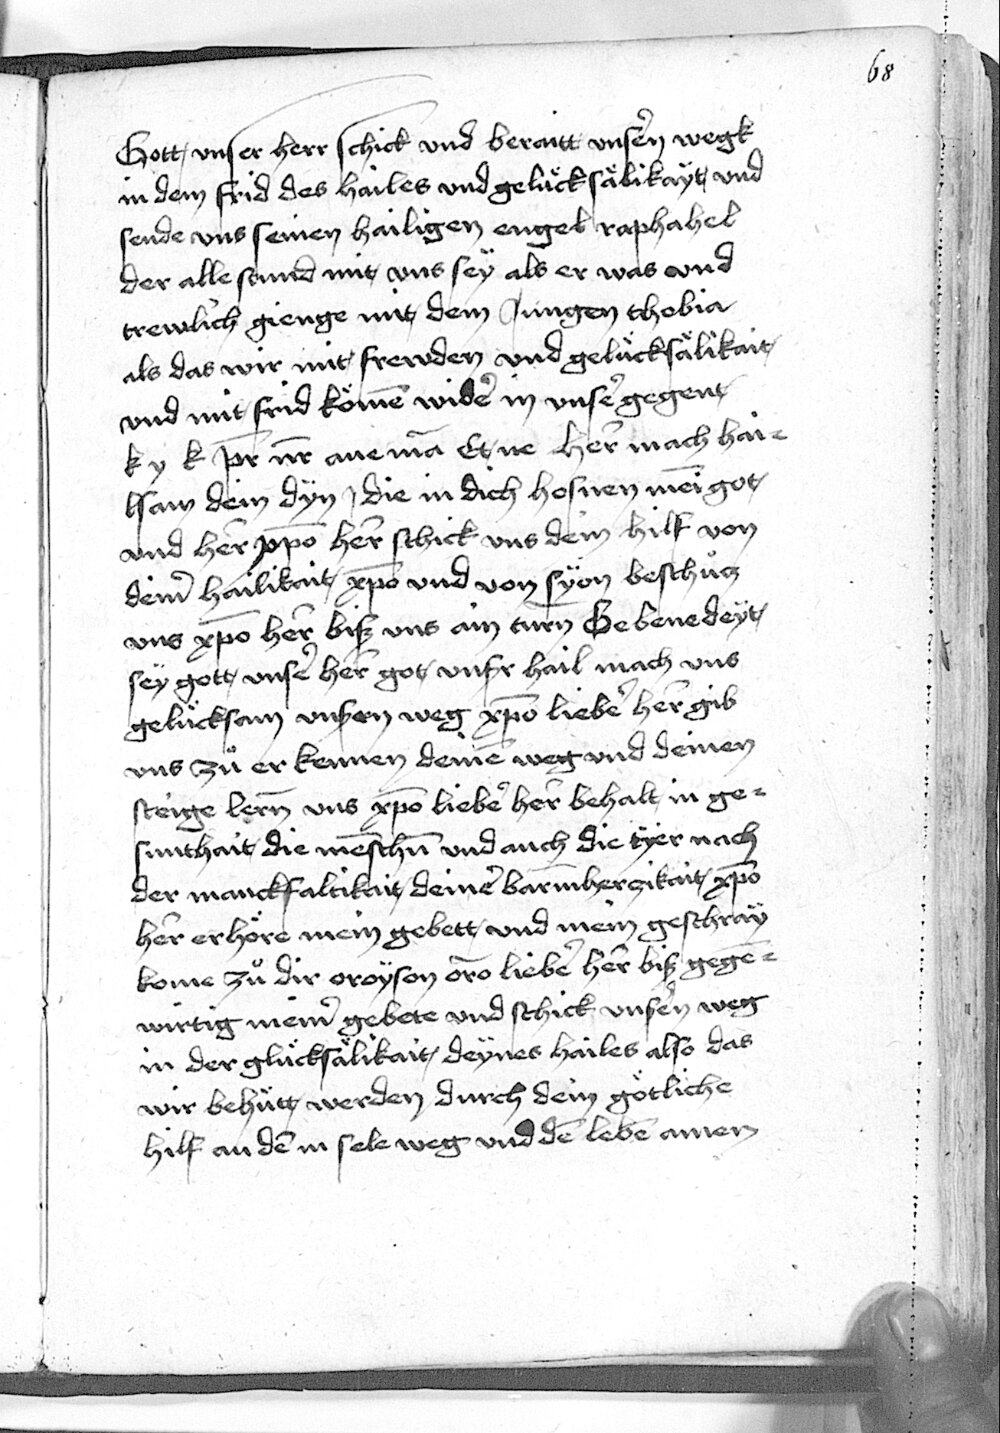 68
Gott unser herr schick und beraitt unsern wegk
in dem frid des hailes und gelücksälikäyt und
sende uns seinen hailigen engel raphahel
der alle stund mit uns sey als er was und
trewlich gienge mit dem Jungen thobia
als das wir mit frewden und gelücksälikait
und mit frid kömē wider in unser gegent
k y k pr nr ave mā Et ne her mach hai=
lsam dein dyn die in dich hofnen mēi got
und her xpō her schick uns dein hilf von
deinr hailikait xpō und von syon beschücz
uns xpō her biß uns ain turn Gebenedeyt
sey gott unser her got unßr hail mach uns
gelücksam unßern weg xpō lieber her gib
uns zů erkennen deinē weg und deinen
steige lern uns xpō lieber her behalt in ge=
sunthait die mēschn und auch die tÿer nach
der manckfaltikait deiner barmherczikait xpō
her erhöre mein gebett und mein geschray
kome zů dir oroyson oro lieber her biß gegē=
wirtig meinr gebete und schick unsern weg
in der glücksälikait deynes hailes also das
wir behütt werden durch dein götliche
hilf an dē in sele weg und dē lebē amen